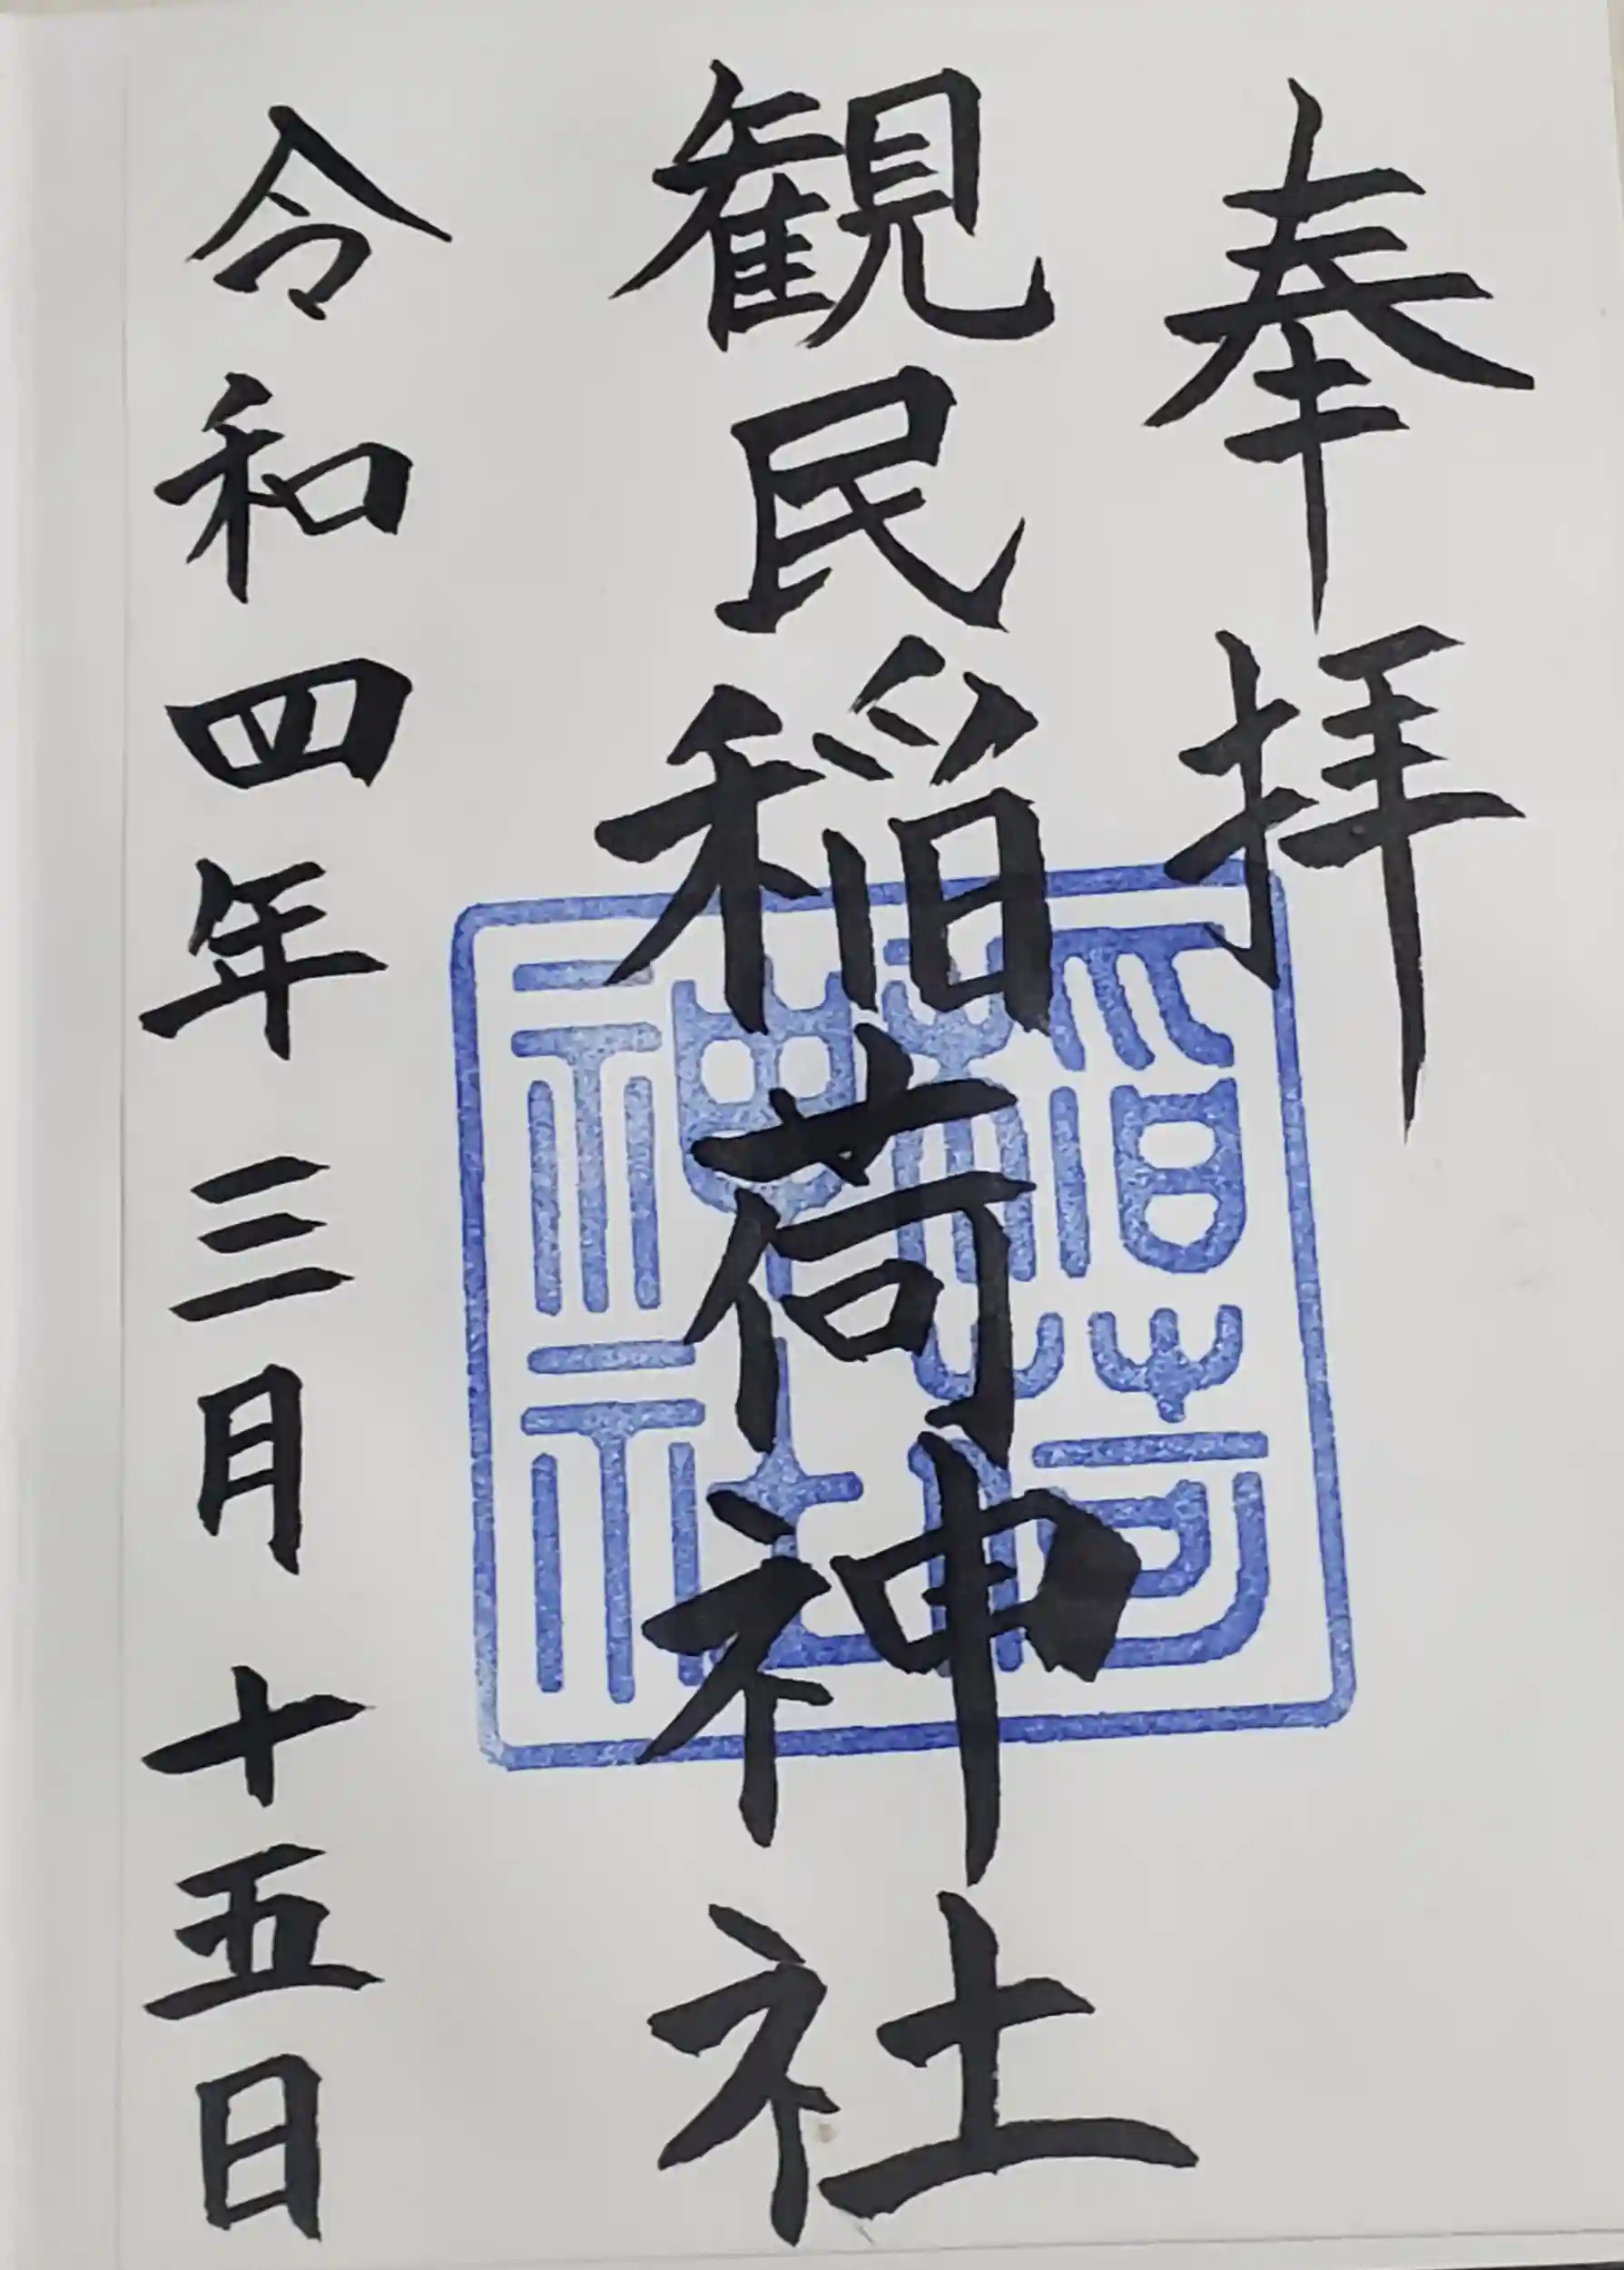 奉拝
観民稲荷神社
稲荷神社
令和四年三月十五日